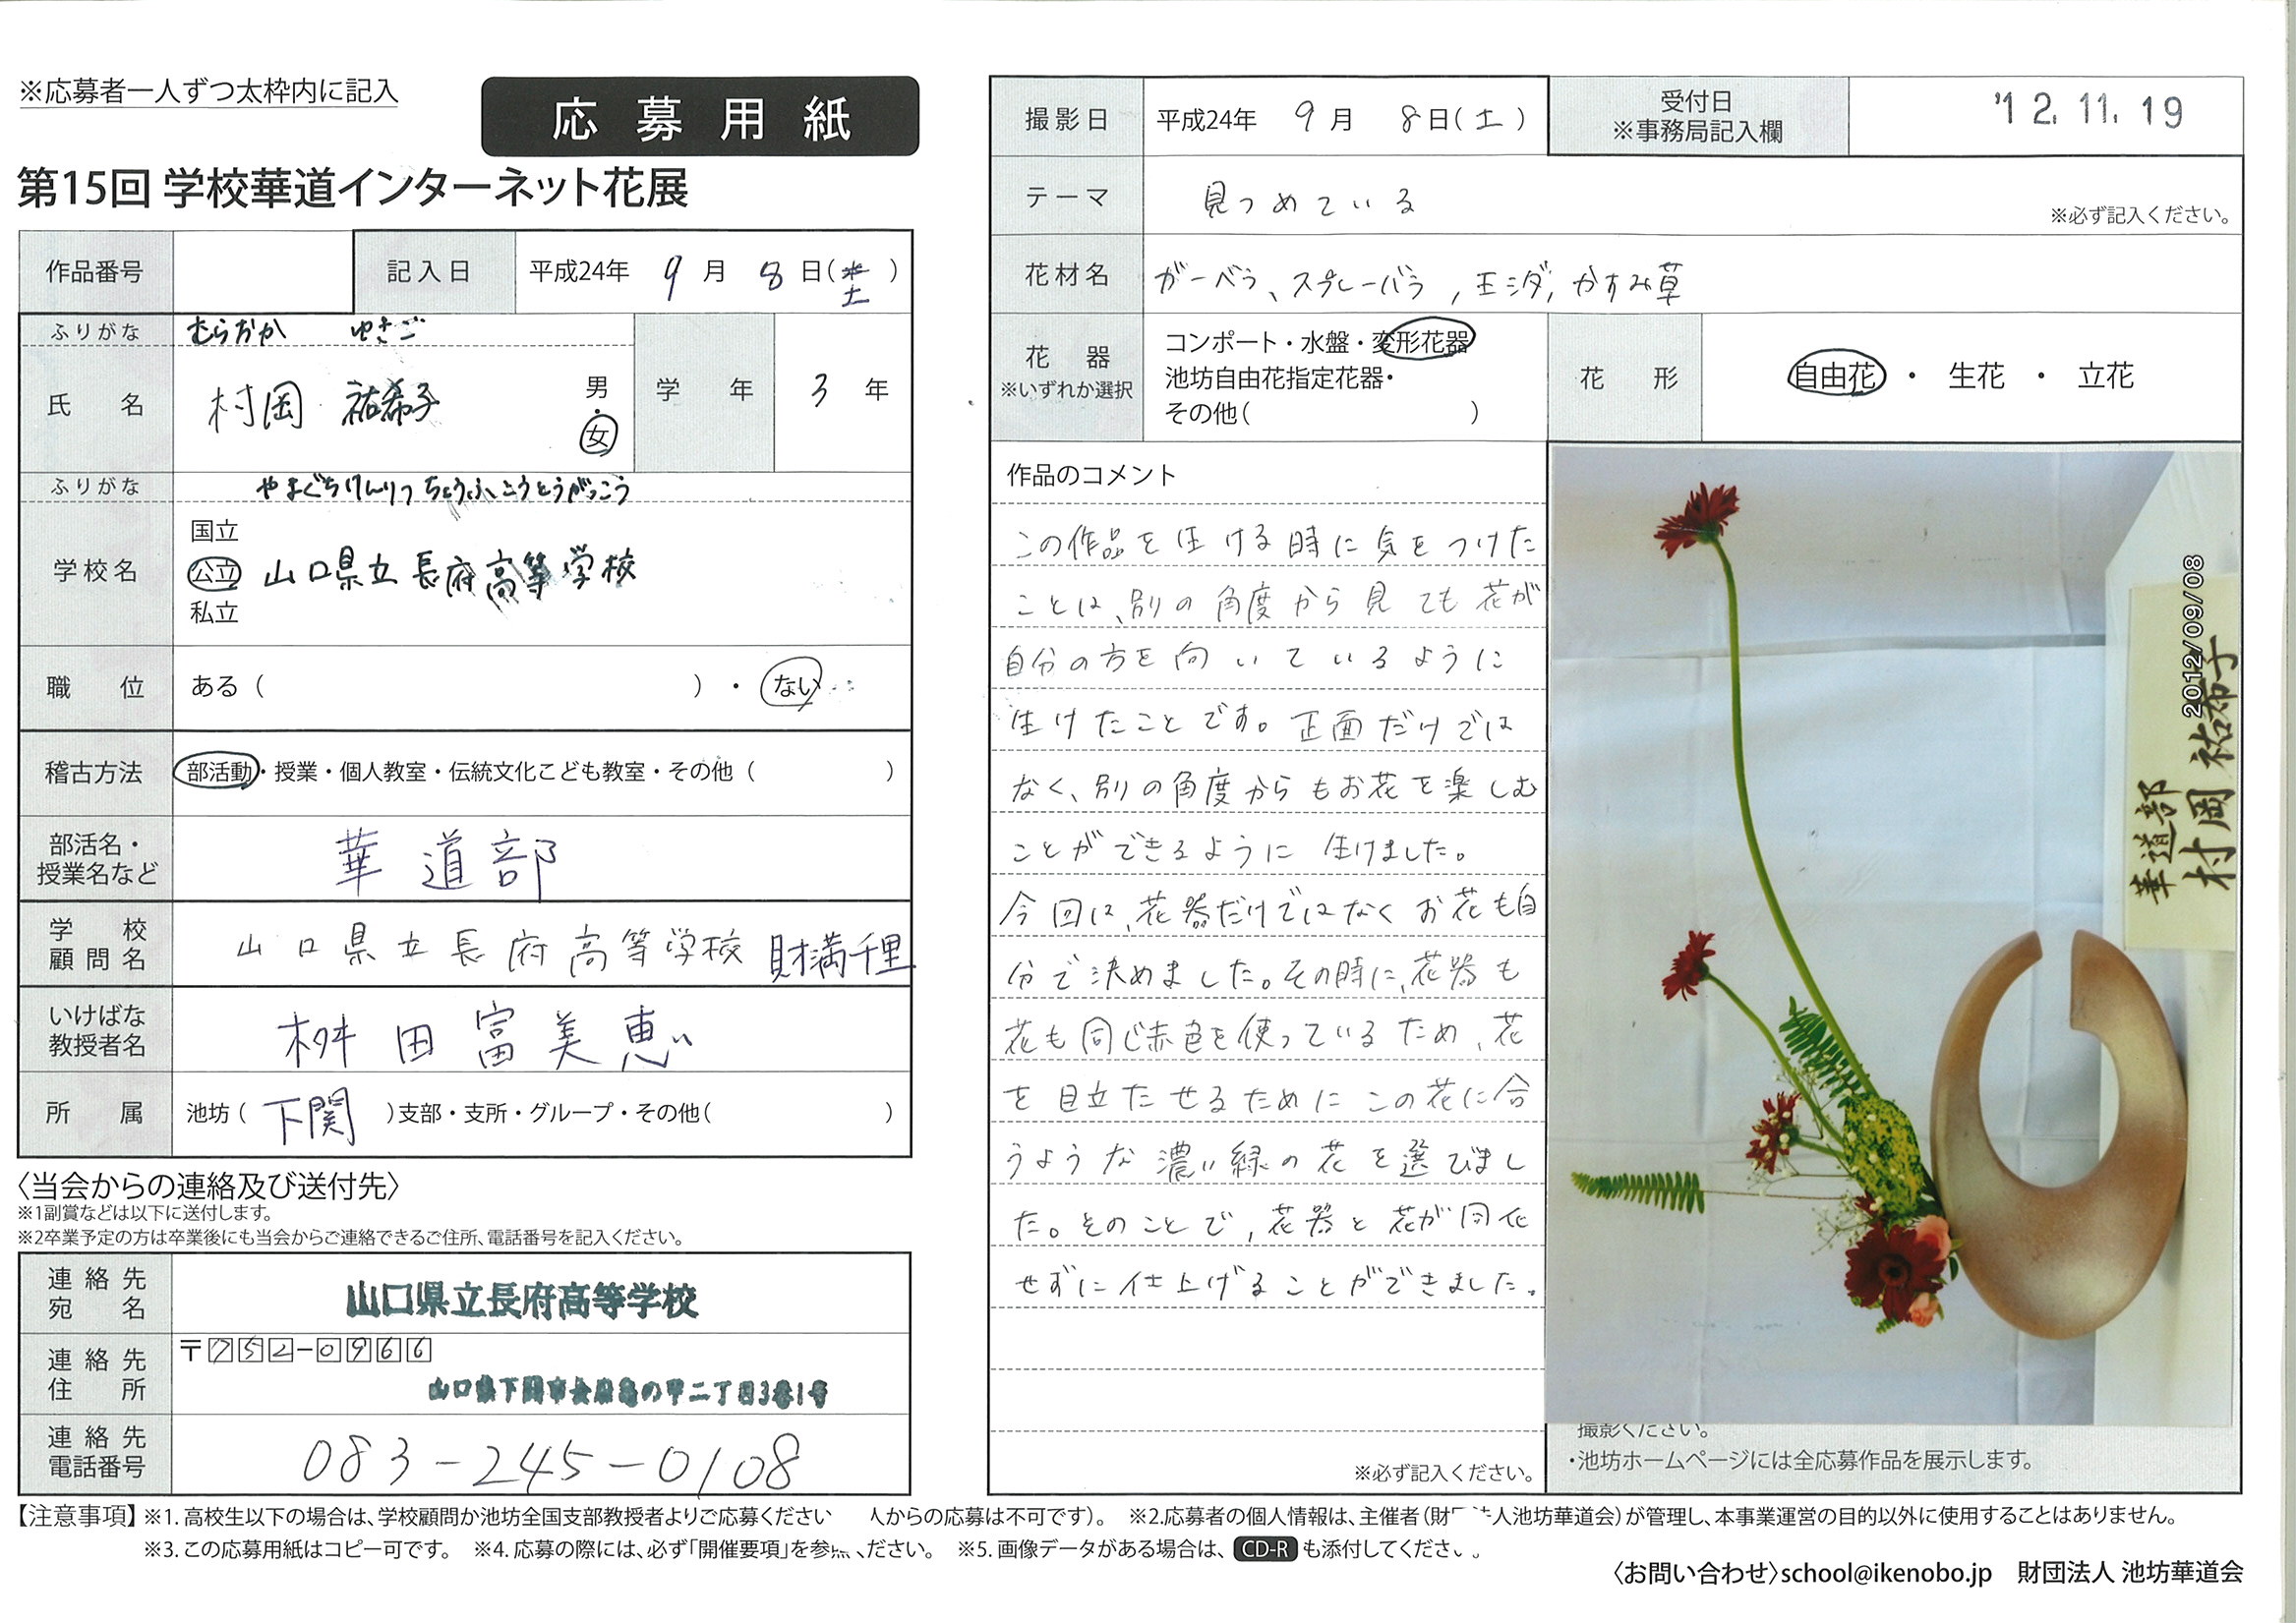 ※応募者一人ずつ太枠内に記入
応募用紙
第15回 学校華道インターネット花展
作品番号
記入日 平成24年 9月 8日(土)
ふりがな むらおか ゆきこ
氏名 村岡 祐希子 男・女
学年 3年
ふりがな やまぐちけんりつ ちょうふこうとうがっこう
学校名 国立
公立 山口県立長府高等学校
私立
職位 ある( )・ない
稽古方法 部活動・授業・個人教室・伝統文化こども教室・その他( )
部活名・授業名など 華道部
学校顧問名 山口県立長府高等学校 財満千里
いけばな教授者名 桝田富美恵
所属 池坊(下関)支部・支所・グループ・その他( )
〈当会からの連絡及び送付先〉
※1副賞などは以下に送付します。
※2卒業予定の方は卒業後にも当会からご連絡できるご住所、電話番号を記入ください。
連絡先宛名 山口県立長府高等学校
連絡先住所 〒752-0966
山口県下関市長府亀の甲二丁目3番1号
連絡先電話番号 083-245-0108
撮影日 平成24年 9月 8日(土)
受付日
※事務局記入欄
'12.11.19
テーマ 見つめている
※必ず記入ください。
花材名 ガーベラ、スプレーバラ,玉シダ,かすみ草
花器
※いずれか選択
コンポート・水盤・変形花器
池坊自由花指定花器・
その他( )
花形 自由花・生花・立花
作品のコメント
この作品を生ける時に気をつけた
ことは、別の角度から見ても花が
自分の方を向いているように
生けたことです。正面だけでは
なく、別の角度からもお花を楽しむ
ことができるように生けました。
今回は、花器だけではなくお花も自
分で決めました。その時に、花器も
花も同じ赤色を使っているため、花
を目立たせるためにこの花に合
うような濃い緑の花を選びまし
た。そのことで,花器と花が同化
せずに仕上げることができました。
※必ず記入ください。
2012/09/08
華道部
村岡 祐希子
撮影ください。
・池坊ホームページには全応募作品を展示します。
【注意事項】※1.高校生以下の場合は、学校顧問か池坊全国支部教授者よりご応募ください 人からの応募は不可です)。 ※2.応募者の個人情報は、主催者(財 人池坊華道会)が管理し、本事業運営の目的以外に使用することはありません。
※3.この応募用紙はコピー可です。 ※4.応募の際には、必ず「開催要項」を参 ください。 ※5.画像データがある場合は、CD-Rも添付してくださ 。
〈お問い合わせ〉school@ikenobo.jp 財団法人 池坊華道会